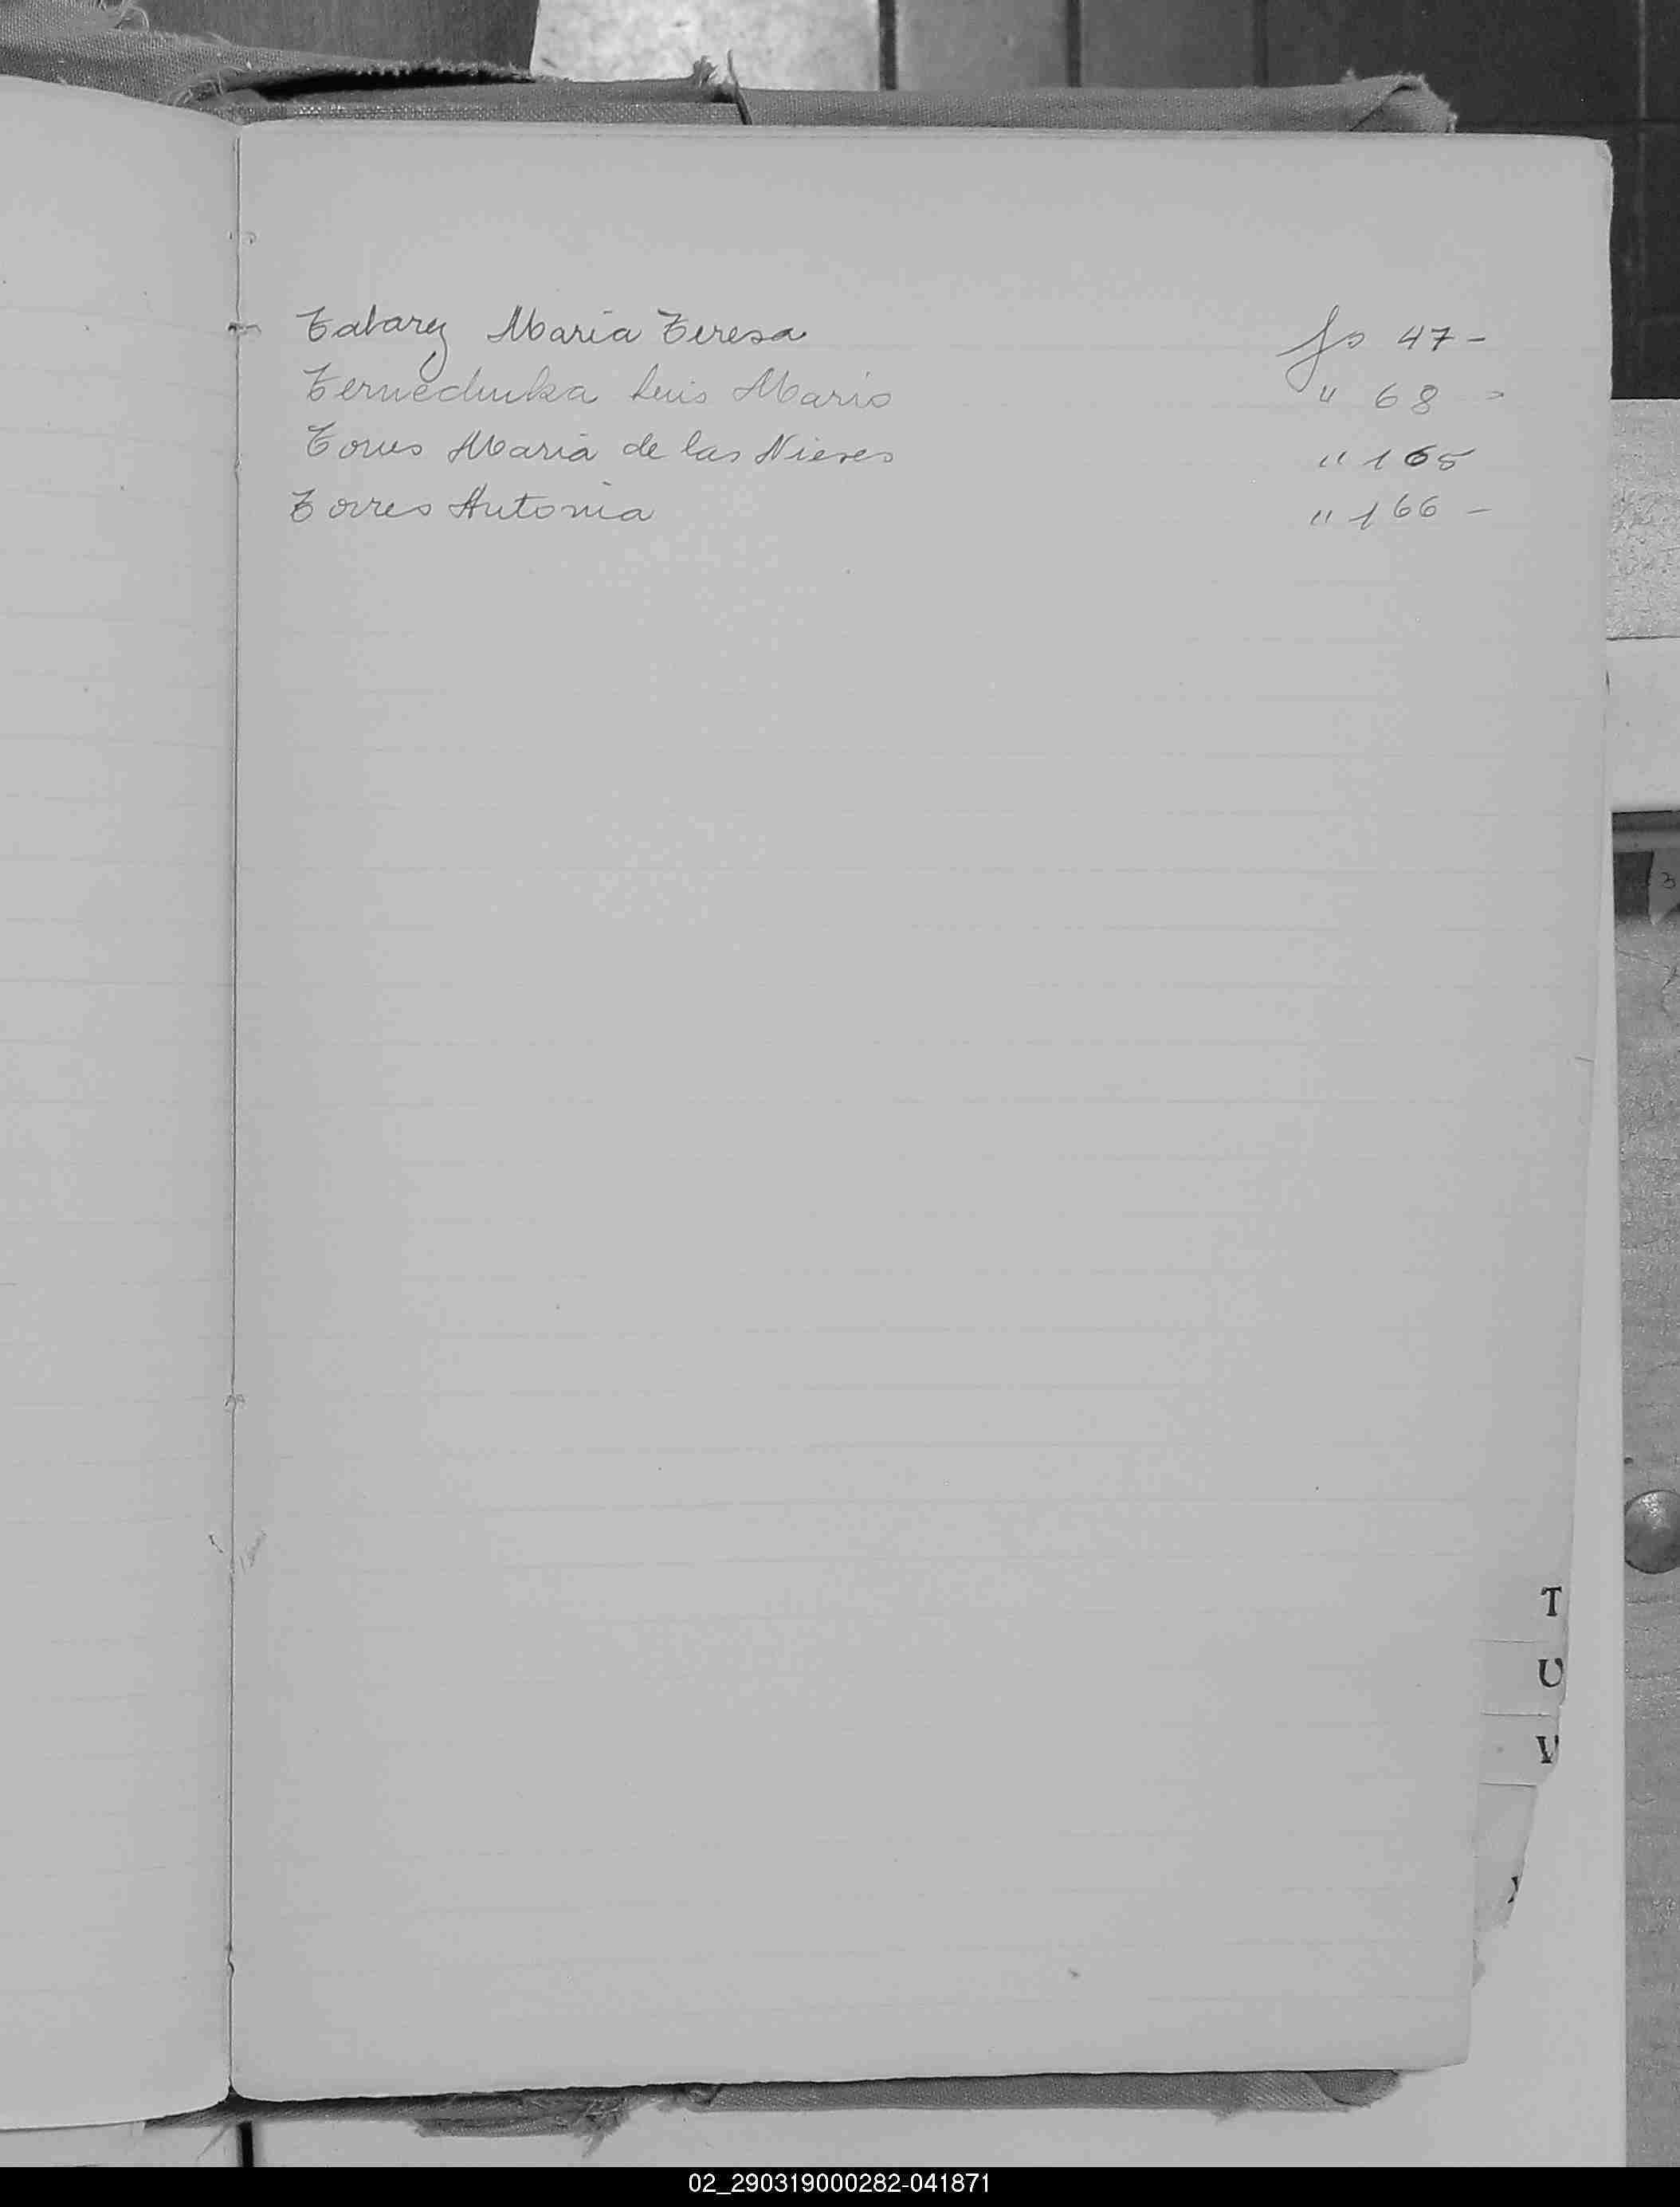 Tabarez Maria Teresa fs 47 -
Ternechuka Luis Mario " 68 -
Torres Maria de las Nieves " 165
Torres Antonia " 166 -
T
U
V
02_290319000282-041871